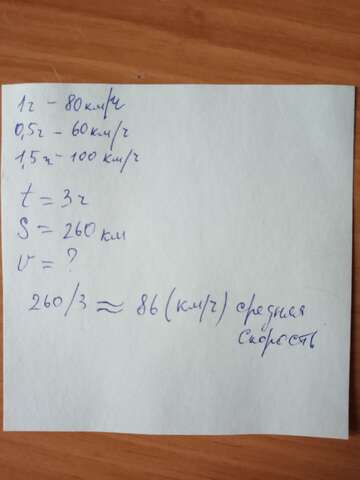 1ч - 80 км/ч
0,5ч - 60 км/ч
1,5ч - 100 км/ч
t = 3ч
S = 260 км
v = ?
260/3 ≈ 86 (км/ч) средняя
скорость